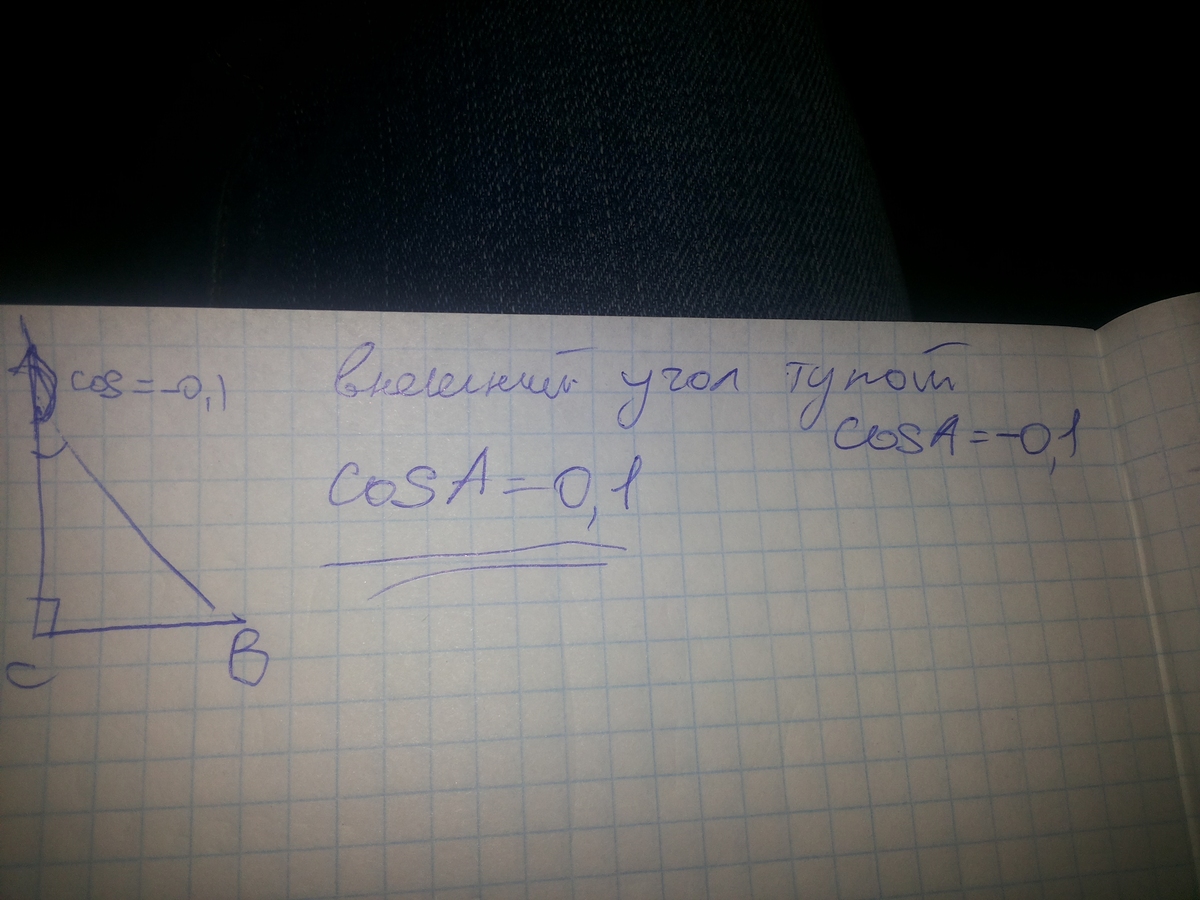 A cos = -0,1 внешний угол тупой
cosA = -0,1
cosA = -0,1
C
B